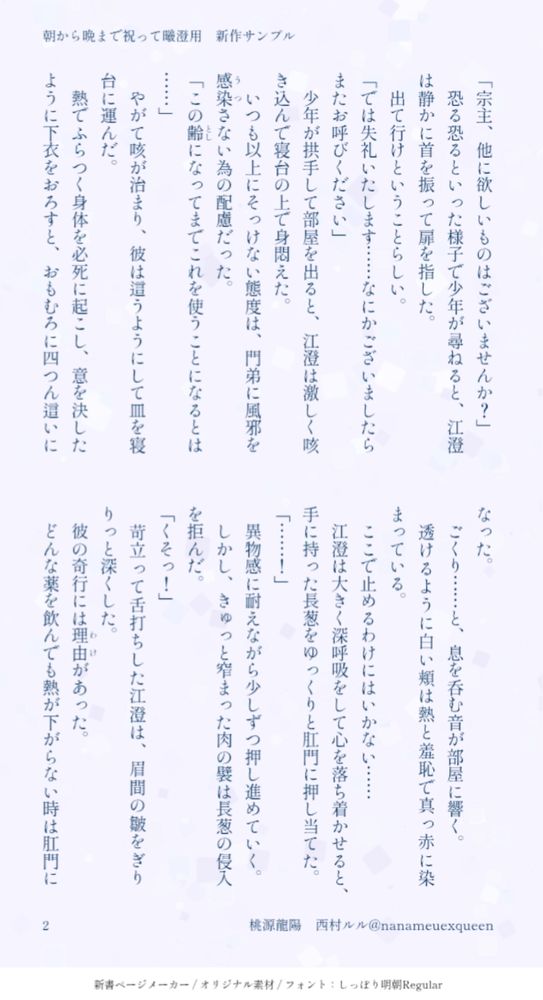 朝から晩まで祝って曦澄用　新作サンプル
「宗主、他に欲しいものはございませんか？」
恐る恐るといった様子で少年が尋ねると、江澄
は静かに首を振って扉を指した。
出て行けということらしい。
「では失礼いたします……なにかございましたら
またお呼びください」
少年が拱手して部屋を出ると、江澄は激しく咳
き込んで寝台の上で身悶えた。
いつも以上にそっけない態度は、門弟に風邪を
感染さない為の配慮だった。
「この齢になってまでこれを使うことになるとは
……」
やがて咳が治まり、彼は這うようにして皿を寝
台に運んだ。
熱でふらつく身体を必死に起こし、意を決した
ように下衣をおろすと、おもむろに四つん這いに
なった。
ごくり……と、息を呑む音が部屋に響く。
透けるように白い頬は熱と羞恥で真っ赤に染
まっている。
ここで止めるわけにはいかない……
江澄は大きく深呼吸をして心を落ち着かせると、
手に持った長葱をゆっくりと肛門に押し当てた。
「……！」
異物感に耐えながら少しずつ押し進めていく。
しかし、きゅっと窄まった肉の襞は長葱の侵入
を拒んだ。
「くそっ！」
苛立って舌打ちした江澄は、眉間の皺をぎり
りっと深くした。
彼の奇行には理由があった。
どんな薬を飲んでも熱が下がらない時は肛門に
2
桃源龍陽　西村ルル@nanameuexqueen
新書ページメーカー / オリジナル素材 / フォント：しっぽり明朝Regular